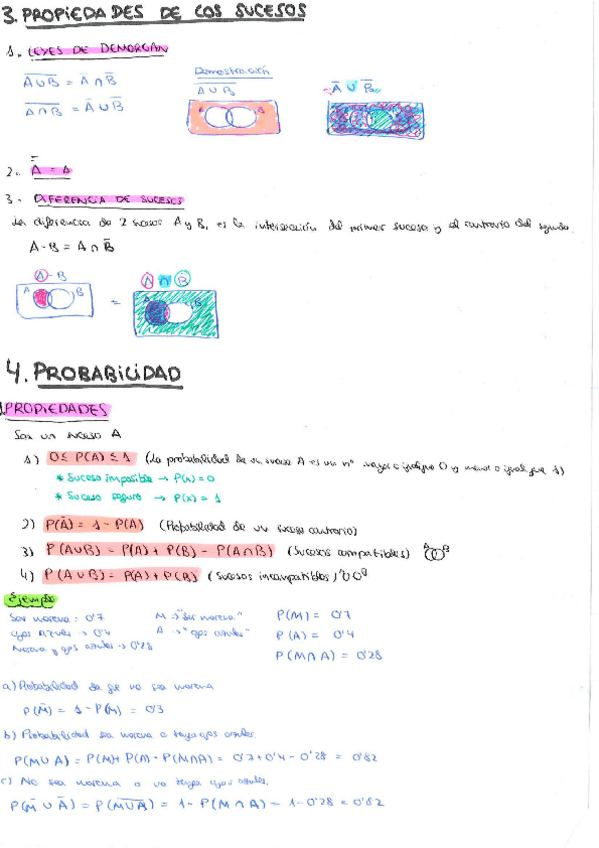 3. PROPIEDADES DE LOS SUCESOS
1. LEYES DE DEMORGAN
Demostración
A̅U̅B̅ = A̅ ∩ B̅
A̅∩̅B̅ = A̅ U B̅
A̅U̅B̅
A̅ U B̅
A B
2. A̿ = A
3. DIFERENCIA DE SUCESOS
La diferencia de 2 sucesos A y B, es la intersección del primer suceso y el contrario del segundo.
A - B = A ∩ B̅
A - B
A ∩ B̅
A B = A B
4. PROBABILIDAD
PROPIEDADES
Sea un suceso A
1) 0 ≤ P(A) ≤ 1 (La probabilidad de un suceso A es un nº mayor o igual que 0 y menor o igual que 1)
* Suceso imposible → P(A) = 0
* Suceso seguro → P(A) = 1
2) P(A̅) = 1 - P(A) (Probabilidad de un suceso contrario)
3) P(AUB) = P(A) + P(B) - P(A∩B) (Sucesos compatibles) A B
4) P(AUB) = P(A) + P(B) (Sucesos incompatibles)
Ejemplo
Ser morena: 0'7 M → "Ser morena" P(M) = 0'7
ojos azules → 0'4 A → "ojos azules" P(A) = 0'4
Morena y ojos azules → 0'28 P(M∩A) = 0'28
a) Probabilidad de que no sea morena
P(M̅) = 1 - P(M) = 0'3
b) Probabilidad sea morena o tenga ojos azules.
P(MUA) = P(M) + P(A) - P(M∩A) = 0'7 + 0'4 - 0'28 = 0'82
c) No sea morena o no tenga ojos azules.
P(M̅ U A̅) = P(M̅U̅A̅) = 1 - P(M∩A) = 1 - 0'28 = 0'82